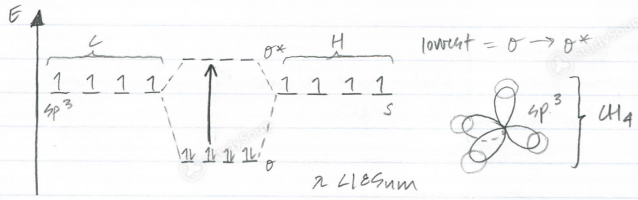 E
C
σ*
H
lowest = σ → σ*
1 1 1 1
1 1 1 1
sp³
s
sp³
CH₄
1L 1L 1L 1L
σ
λ <185nm